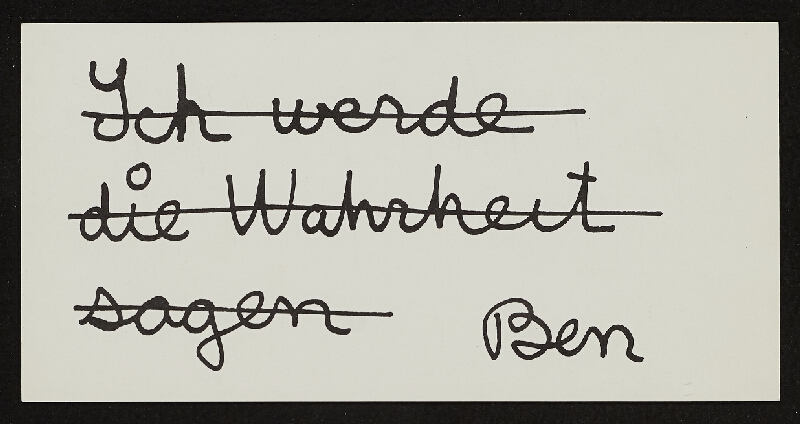 Ich werde
die Wahrheit
sagen
Ben